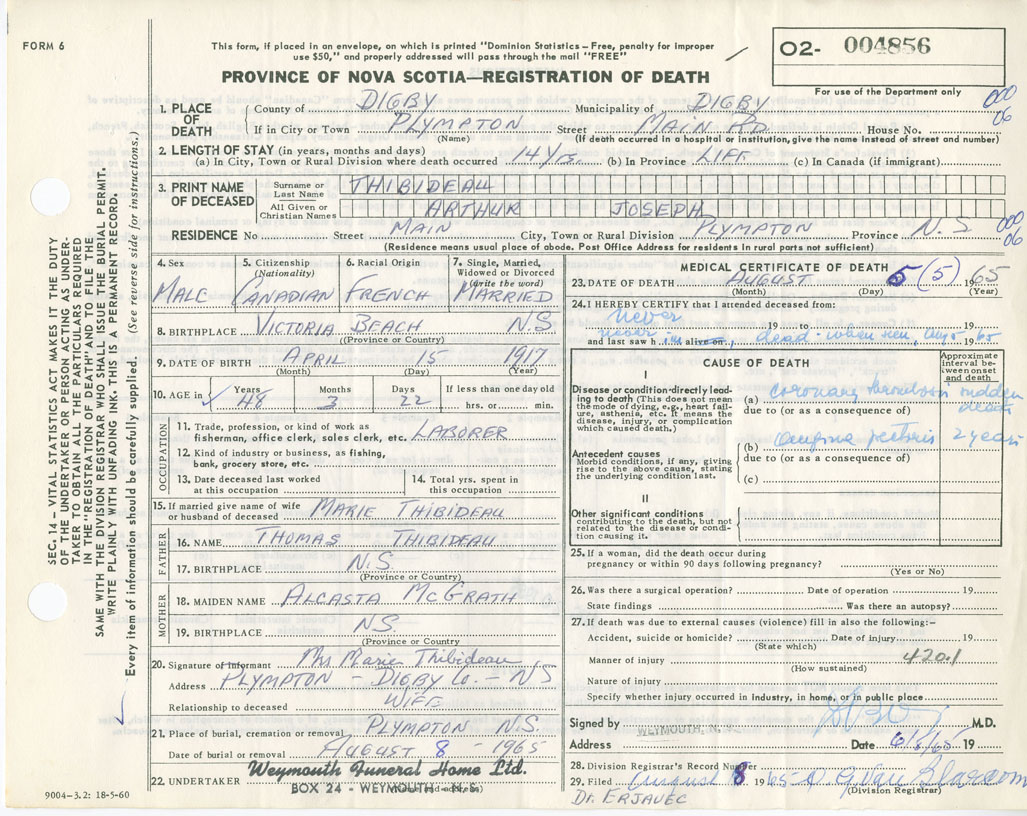 FORM 6
This form, if placed in an envelope, on which is printed "Dominion Statistics – Free, penalty for improper
use $50," and properly addressed will pass through the mail "FREE"
PROVINCE OF NOVA SCOTIA—REGISTRATION OF DEATH
O2- 004856
For use of the Department only
000
06
1. PLACE OF DEATH
County of DIGBY Municipality of DIGBY
If in City or Town PLYMPTON Street MAIN RD. House No.
(Name) (If death occurred in a hospital or institution, give the name instead of street and number)
2. LENGTH OF STAY (in years, months and days)
(a) In City, Town or Rural Division where death occurred 14 Yrs. (b) In Province LIFE (c) In Canada (if immigrant)
3. PRINT NAME OF DECEASED
Surname or Last Name THIBIDEAU
All Given or Christian Names ARTHUR JOSEPH
000
06
RESIDENCE No Street MAIN City, Town or Rural Division PLYMPTON Province N.S.
(Residence means usual place of abode. Post Office Address for residents in rural parts not sufficient)
4. Sex
MALE
5. Citizenship (Nationality)
CANADIAN
6. Racial Origin
FRENCH
7. Single, Married, Widowed or Divorced (write the word)
MARRIED
8. BIRTHPLACE VICTORIA BEACH N.S
(Province or Country)
9. DATE OF BIRTH APRIL 15 1917
(Month) (Day) (Year)
10. AGE in Years 48 Months 3 Days 22 If less than one day old hrs. or min.
OCCUPATION
11. Trade, profession, or kind of work as
fisherman, office clerk, sales clerk, etc. LABORER
12. Kind of industry or business, as fishing,
bank, grocery store, etc.
13. Date deceased last worked
at this occupation
14. Total yrs. spent in
this occupation
15. If married give name of wife
or husband of deceased MARIE THIBIDEAU
FATHER
16. NAME THOMAS THIBIDEAU
17. BIRTHPLACE N.S.
(Province or Country)
MOTHER
18. MAIDEN NAME ALCASTA McGRATH
19. BIRTHPLACE NS.
(Province or Country)
20. Signature of informant Mrs Marie Thibideau
Address PLYMPTON - DIGBY Co. - NS
Relationship to deceased WIFE
21. Place of burial, cremation or removal PLYMPTON N.S.
Date of burial or removal AUGUST 8 - 1965
22. UNDERTAKER Weymouth Funeral Home Ltd.
BOX 24 - WEYMOUTH - N.S.
9004-3.2: 18-5-60
MEDICAL CERTIFICATE OF DEATH
23. DATE OF DEATH AUGUST 5 (5) 1965
(Month) (Day) (Year)
24. I HEREBY CERTIFY that I attended deceased from:
never 19 to 19
never and last saw h im alive on, dead when seen, Aug 5 65
CAUSE OF DEATH
Approximate interval between onset and death
I
Disease or condition directly leading to death (This does not mean the mode of dying, e.g., heart failure, asthenia, etc. It means the disease, injury, or complication which caused death.)
(a) coronary thrombosis sudden death
due to (or as a consequence of)
Antecedent causes
Morbid conditions, if any, giving rise to the above cause, stating the underlying condition last.
(b) Angina pectoris 2 years
due to (or as a consequence of)
(c)
II
Other significant conditions
contributing to the death, but not related to the disease or condition causing it.
25. If a woman, did the death occur during
pregnancy or within 90 days following pregnancy?
(Yes or No)
26. Was there a surgical operation? Date of operation 19
State findings Was there an autopsy?
27. If death was due to external causes (violence) fill in also the following:–
Accident, suicide or homicide? Date of injury 19
(State which)
Manner of injury 420.1
(How sustained)
Nature of injury
Specify whether injury occurred in industry, in home, or in public place
Signed by M.D.
WEYMOUTH, N.S.
Address Date 6/8/65 19
28. Division Registrar's Record Number
29. Filed August 8 1965 D. G. Van Blarcom
(Division Registrar)
Dr. ERJAVEC
SEC. 14 – VITAL STATISTICS ACT MAKES IT THE DUTY
OF THE UNDERTAKER OR PERSON ACTING AS UNDER-
TAKER TO OBTAIN ALL THE PARTICULARS REQUIRED
IN THE "REGISTRATION OF DEATH" AND TO FILE THE
SAME WITH THE DIVISION REGISTRAR WHO SHALL ISSUE THE BURIAL PERMIT.
WRITE PLAINLY WITH UNFADING INK. THIS IS A PERMANENT RECORD.
Every item of information should be carefully supplied. (See reverse side for instructions.)